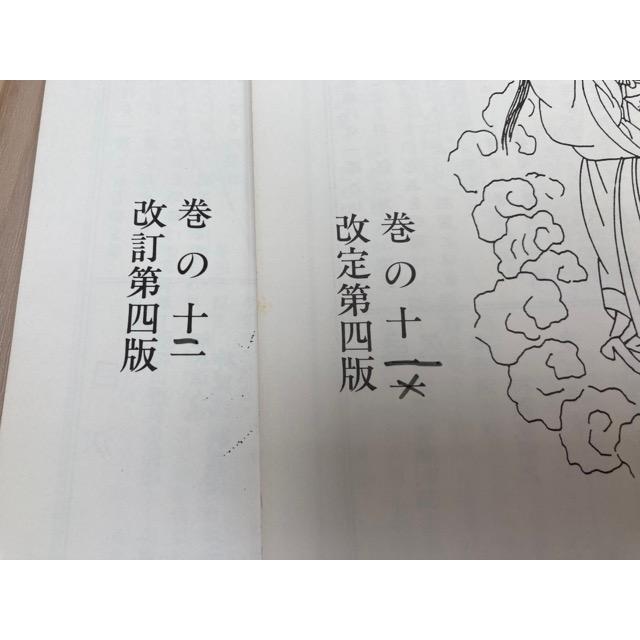 巻の十一
改定第四版
巻の十二
改訂第四版